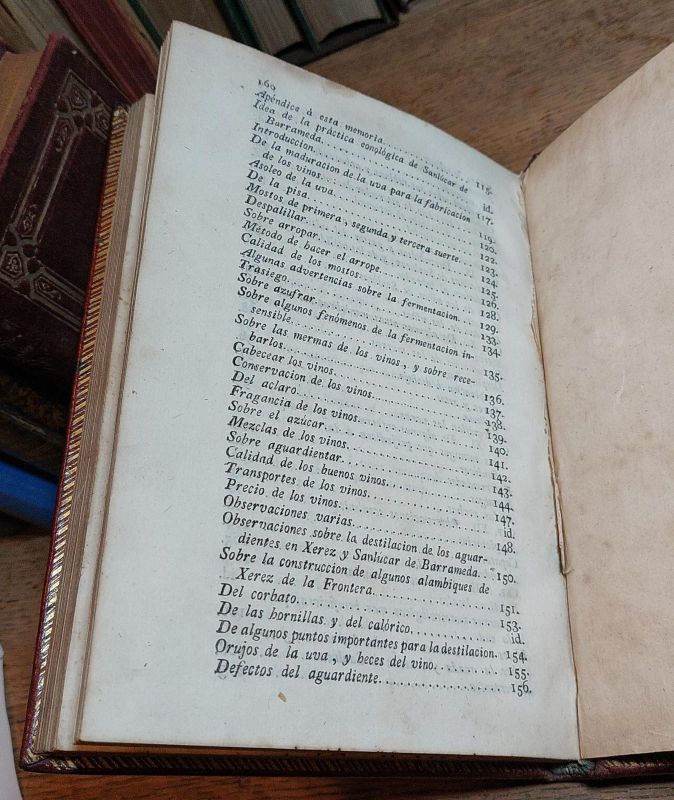 160
Apéndice á esta memoria........ 115.
Idea de la práctica eonológica de Sanlúcar de
Barrameda........ id.
Introduccion........ 117.
De la maduracion de la uva para la fabricacion
de los vinos........ 119.
Asoleo de la uva........ 120.
De la pisa........ 122.
Mostos de primera, segunda y tercera suerte. 123.
Despalillar........ 124.
Sobre arropar........ 125.
Método de hacer el arrope........ 126.
Calidad de los mostos........ 128.
Algunas advertencias sobre la fermentacion... 129.
Trasiego........ 133.
Sobre azufrar........ 134.
Sobre algunos fenómenos de la fermentacion in-
sensible........ 135.
Sobre las mermas de los vinos, y sobre rece-
barlos........ 136.
Cabecear los vinos........ 137.
Conservacion de los vinos........ 138.
Del aclaro........ 139.
Fragancia de los vinos........ 140.
Sobre el azúcar........ 141.
Mezclas de los vinos........ 142.
Sobre aguardientar........ 143.
Calidad de los buenos vinos........ 144.
Transportes de los vinos........ 147.
Precio de los vinos........ id.
Observaciones varias........ 148.
Observaciones sobre la destilacion de los aguar-
dientes en Xerez y Sanlucar de Barrameda... 150.
Sobre la construccion de algunos alambiques de
Xerez de la Frontera........ 151.
Del corbato........ 153.
De las hornillas y del calórico........ id.
De algunos puntos importantes para la destilacion. 154.
Orujos de la uva, y heces del vino........ 155.
Defectos del aguardiente........ 156.